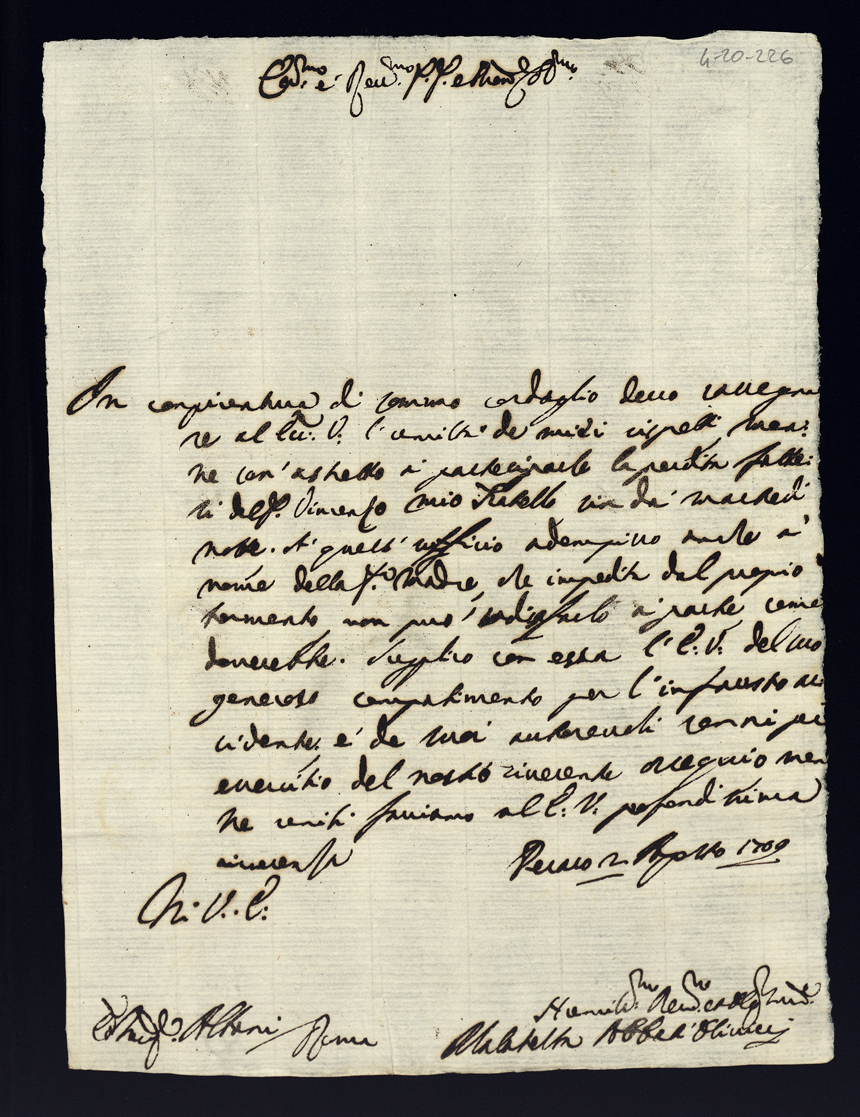 4-20-226
Em.mo e Rev.mo
In congiuntura di sommo cordoglio devo rassegna
re al E.: V.: l'umiltà de miei rispetti, men:
he con'astretto a parteciparle la perdita fatta
si del S.r Vincenzo mio Fratello
notte. A' quest'uffizio adempisco anche a'
nome della S.ra Madre, che impedita dal proprio
tormento non può sodisfarlo a parte come
doverebbe. Supplico con essa l'E.: V.: del suo
generoso compatimento per l'infausto ac
cidente, e' de suoi autorevoli cenni per
esercitio del nostro riverente ossequio men
he uniti facciamo al E.: V.: profondissima
riverenza
Pesaro 2 Agosto 1709
Di V.: E.:
Humilis.mo Dev.mo
Albani Roma
Malatesta Abbati Olivieri